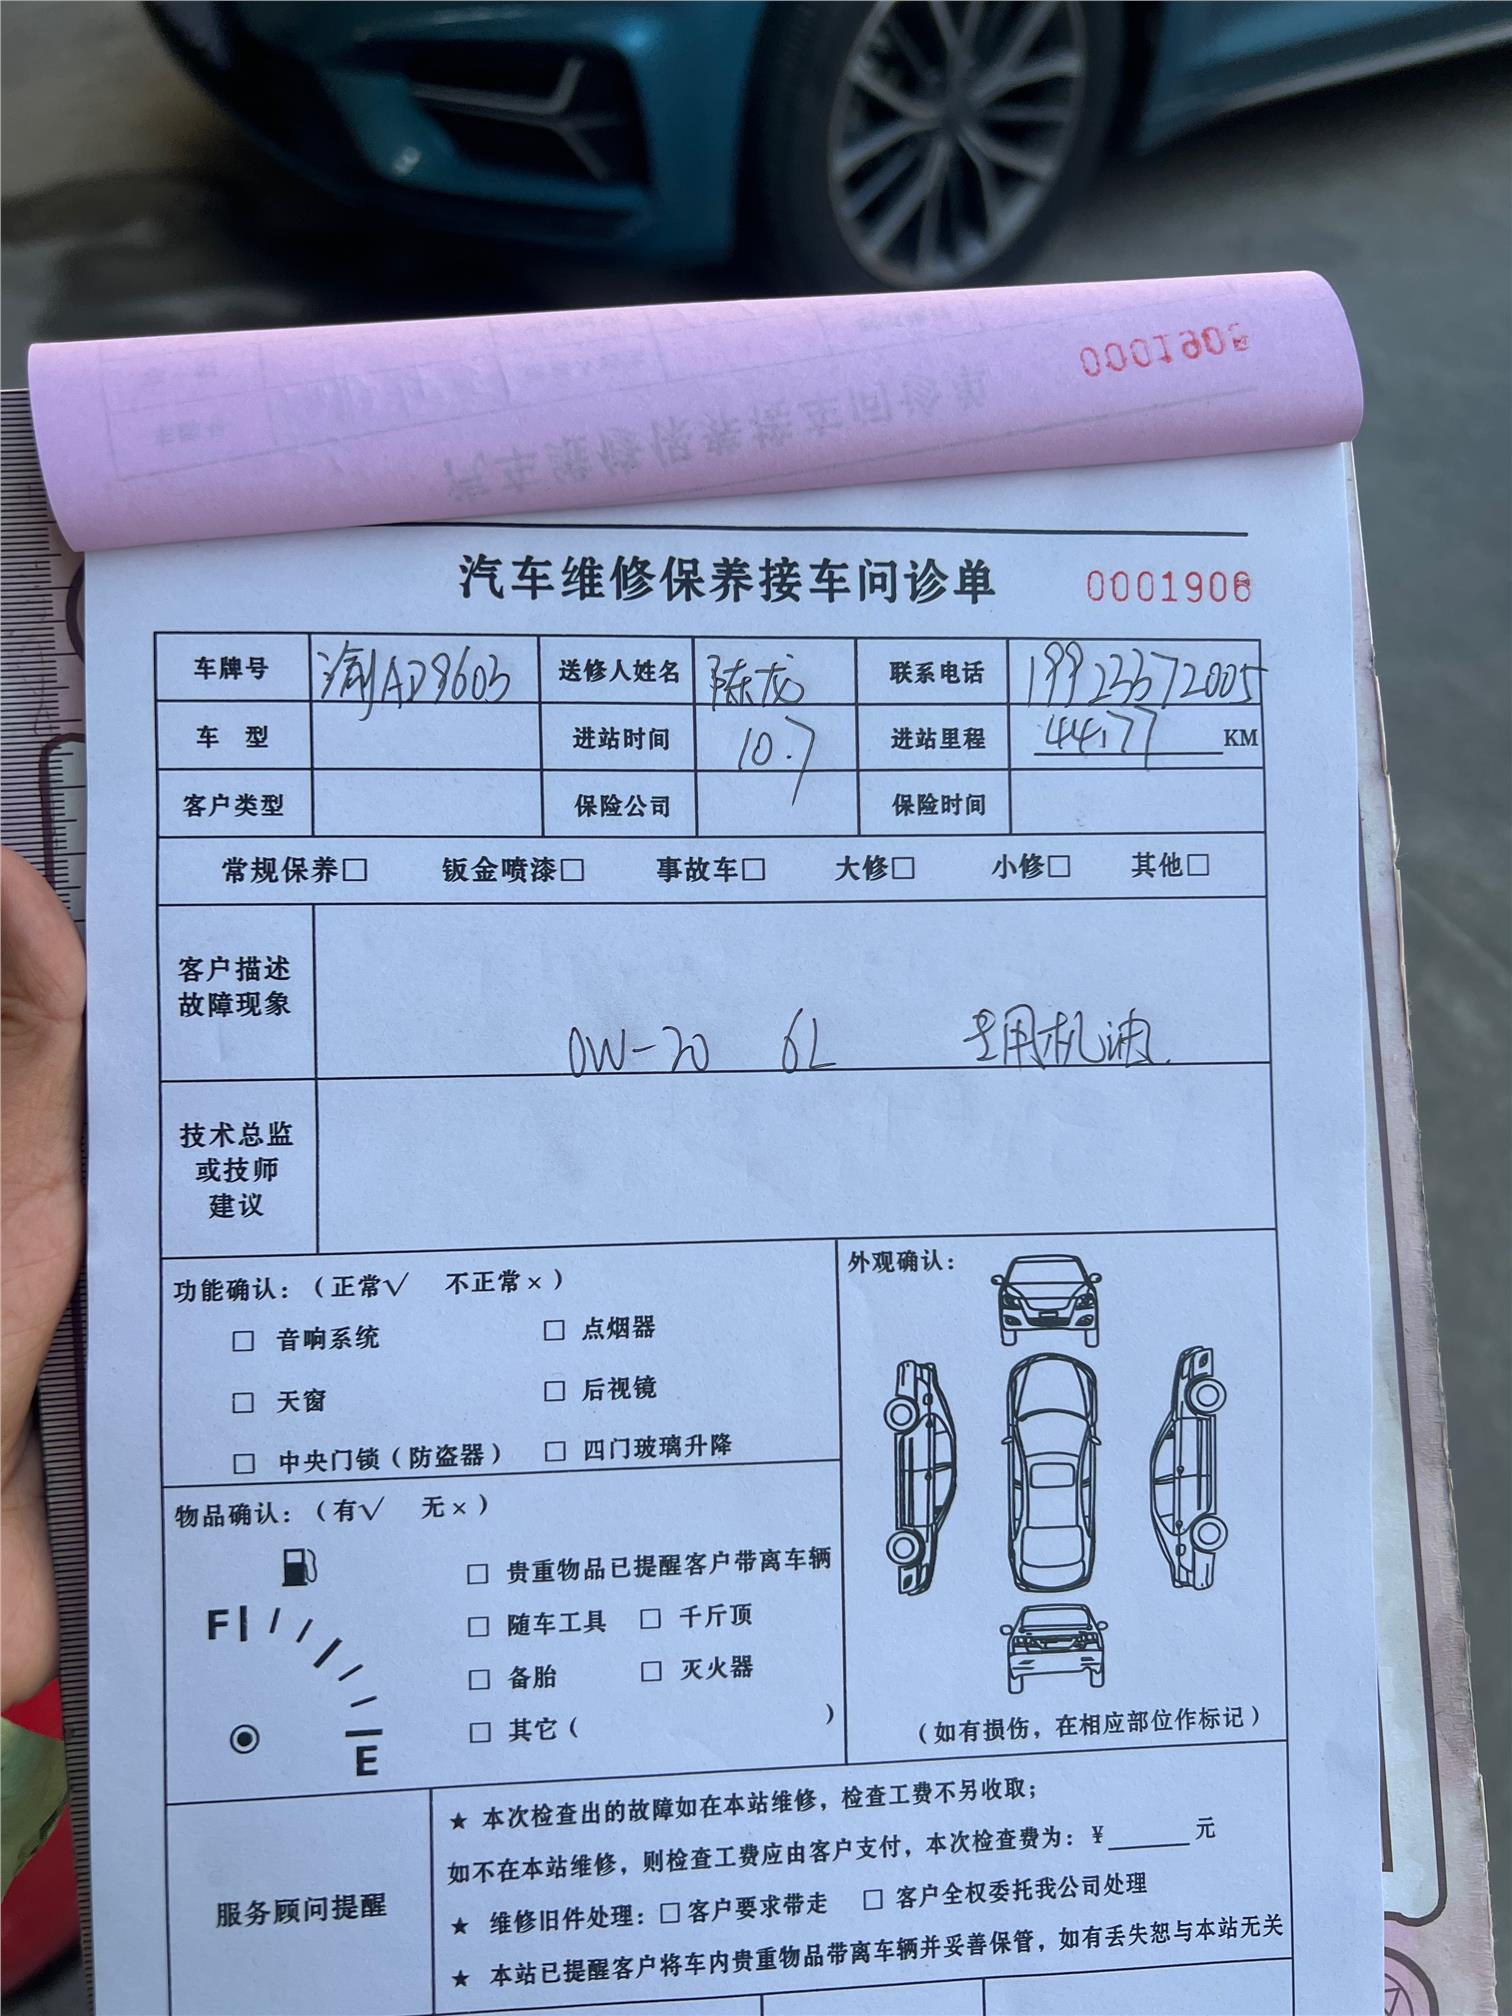 0001905
汽车维修保养接车问诊单
汽车维修保养接车问诊单 0001906
车牌号 渝AD9603 送修人姓名 陈龙 联系电话 19923372005
车 型 进站时间 10.7 进站里程 44177 KM
客户类型 保险公司 保险时间
常规保养□ 钣金喷漆□ 事故车□ 大修□ 小修□ 其他□
客户描述
故障现象
0W-20 6L 专用机油.
技术总监
或技师
建议
功能确认：（正常√ 不正常×）
□ 音响系统 □ 点烟器
□ 天窗 □ 后视镜
□ 中央门锁（防盗器） □ 四门玻璃升降
外观确认：
（如有损伤，在相应部位作标记）
物品确认：（有√ 无×）
F
E
□ 贵重物品已提醒客户带离车辆
□ 随车工具 □ 千斤顶
□ 备胎 □ 灭火器
□ 其它（ ）
服务顾问提醒
★ 本次检查出的故障如在本站维修，检查工费不另收取；
如不在本站维修，则检查工费应由客户支付，本次检查费为：¥______元
★ 维修旧件处理：□客户要求带走 □ 客户全权委托我公司处理
★ 本站已提醒客户将车内贵重物品带离车辆并妥善保管，如有丢失恕与本站无关